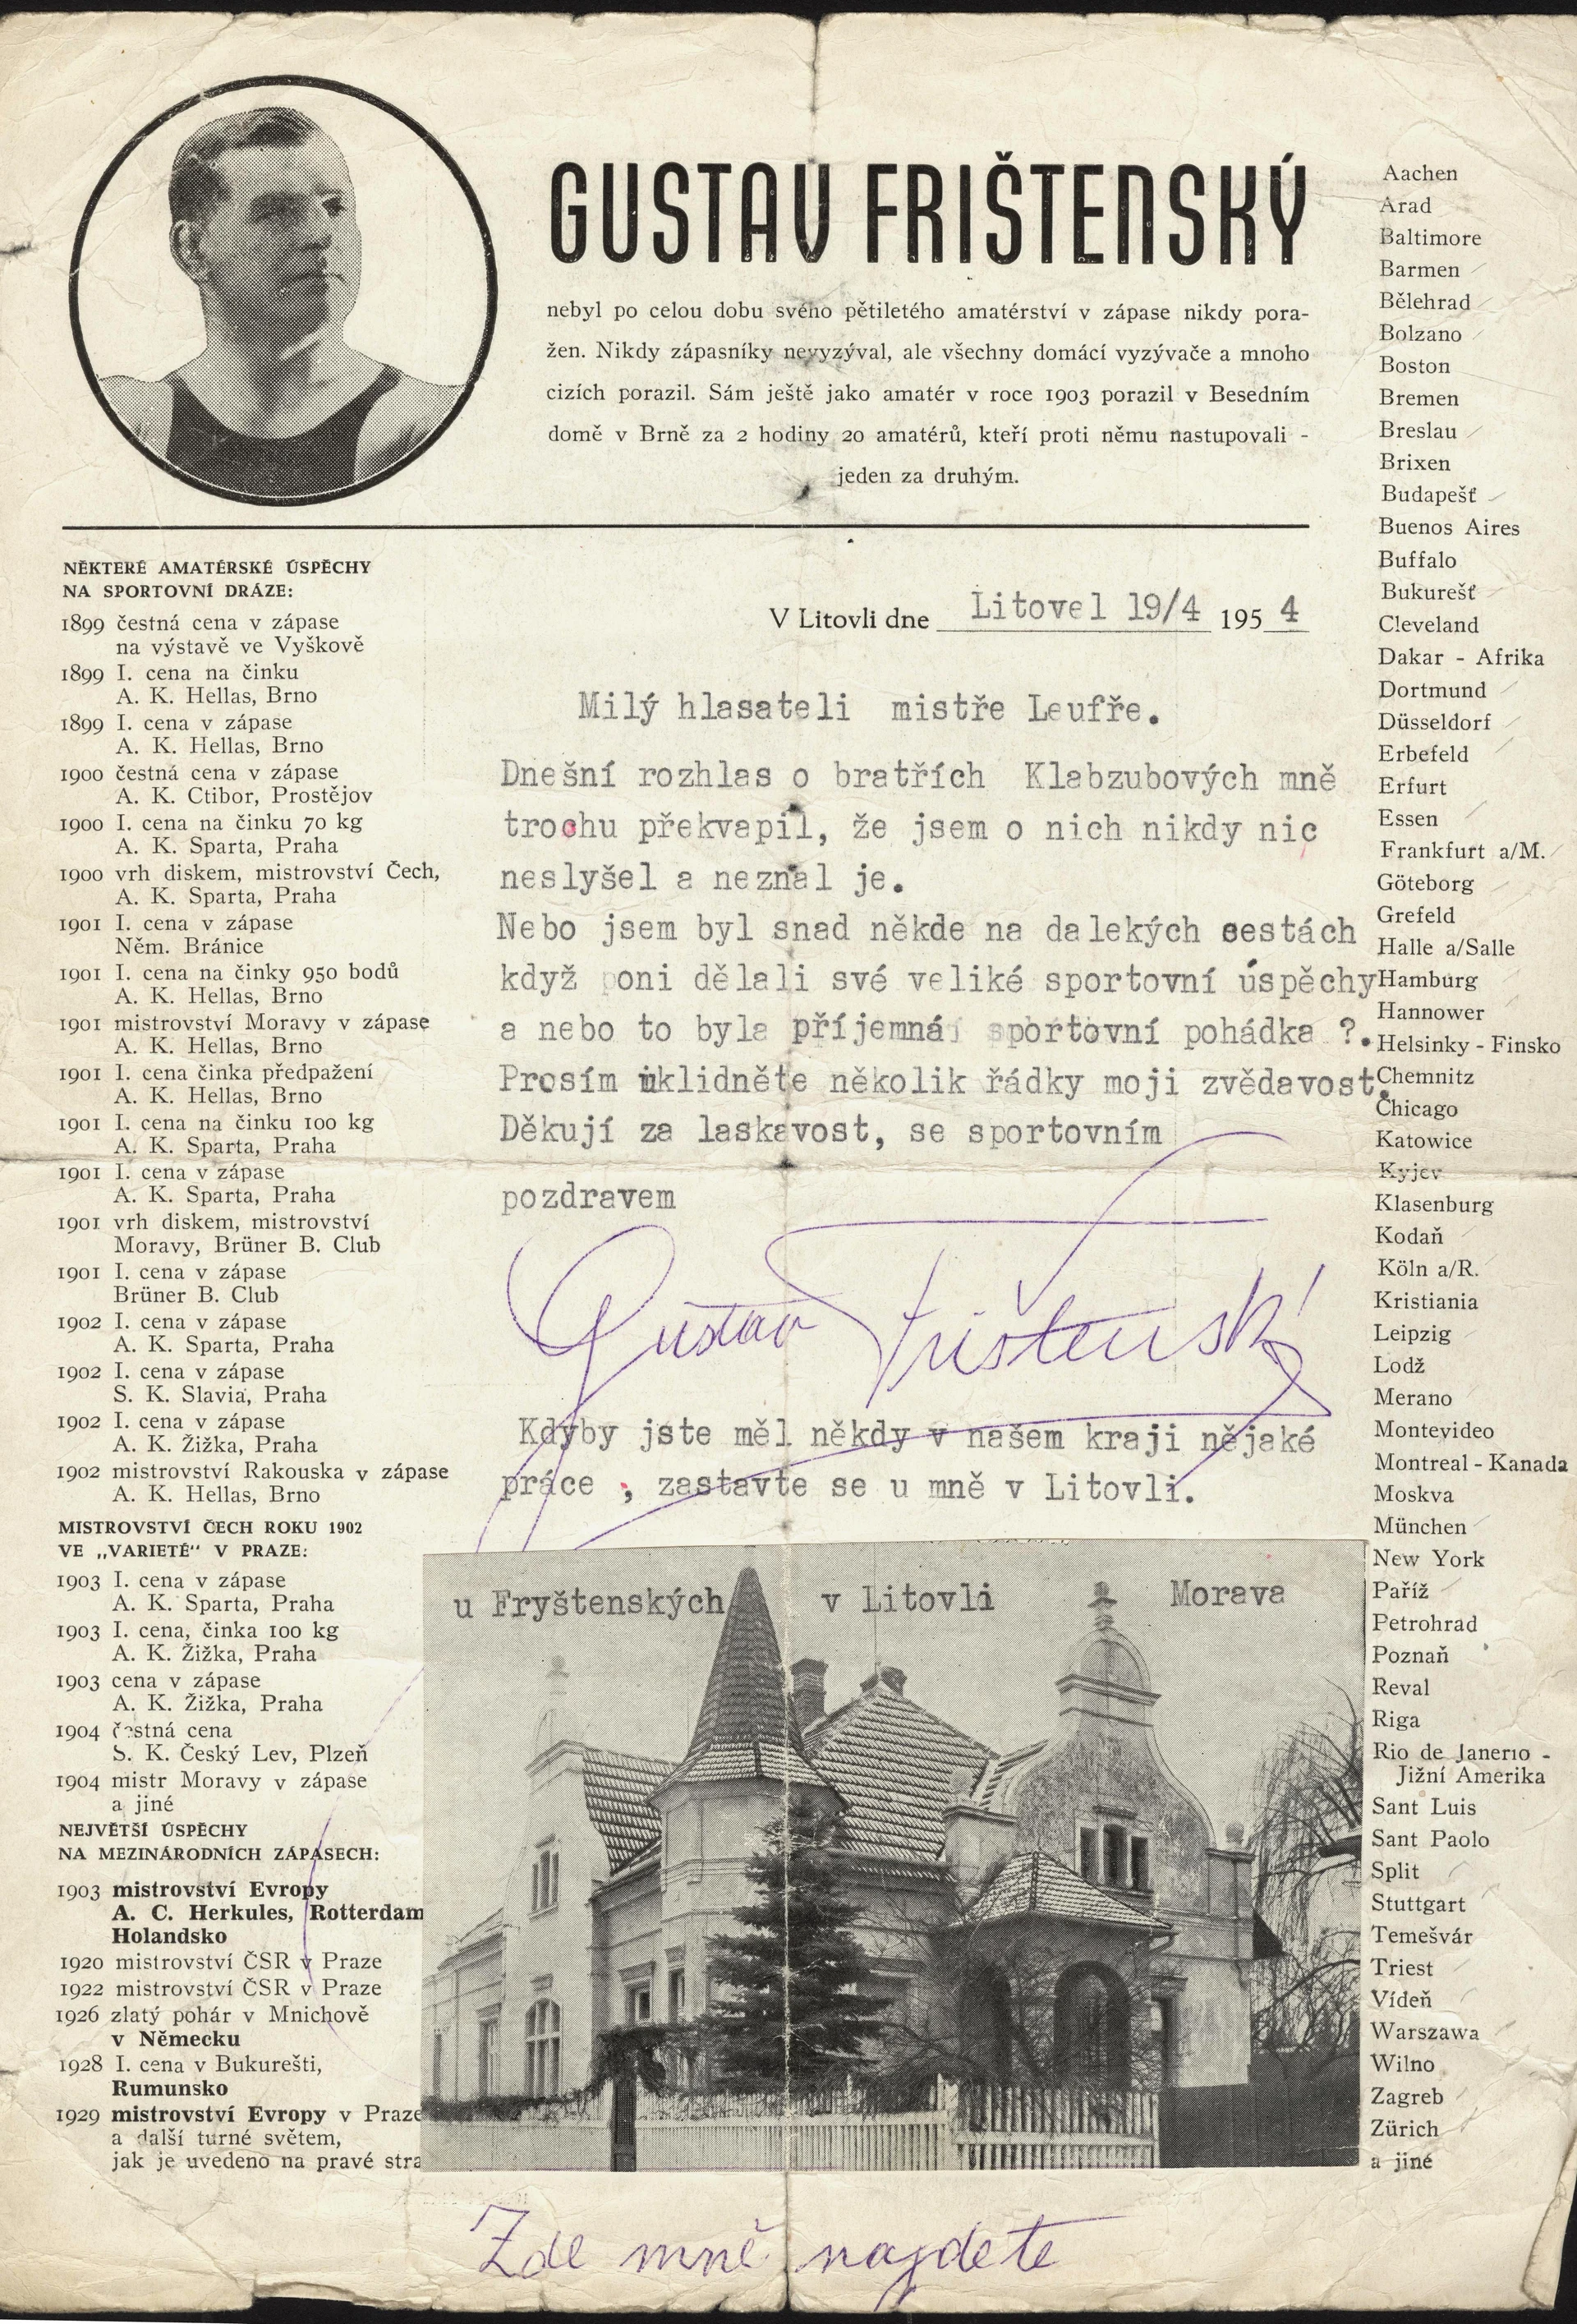 GUSTAV FRIŠTENSKÝ
nebyl po celou dobu svého pětiletého amatérství v zápase nikdy pora-
žen. Nikdy zápasníky nevyzýval, ale všechny domácí vyzývače a mnoho
cizích porazil. Sám ještě jako amatér v roce 1903 porazil v Besedním
domě v Brně za 2 hodiny 20 amatérů, kteří proti němu nastupovali -
jeden za druhým.
NĚKTERÉ AMATÉRSKÉ ÚSPĚCHY
NA SPORTOVNÍ DRÁZE:
1899 čestná cena v zápase
na výstavě ve Vyškově
1899 I. cena na činku
A. K. Hellas, Brno
1899 I. cena v zápase
A. K. Hellas, Brno
1900 čestná cena v zápase
A. K. Ctibor, Prostějov
1900 I. cena na činku 70 kg
A. K. Sparta, Praha
1900 vrh diskem, mistrovství Čech,
A. K. Sparta, Praha
1901 I. cena v zápase
Něm. Bránice
1901 I. cena na činky 950 bodů
A. K. Hellas, Brno
1901 mistrovství Moravy v zápase
A. K. Hellas, Brno
1901 I. cena činka předpažení
A. K. Hellas, Brno
1901 I. cena na činku 100 kg
A. K. Sparta, Praha
1901 I. cena v zápase
A. K. Sparta, Praha
1901 vrh diskem, mistrovství
Moravy, Brüner B. Club
1901 I. cena v zápase
Brüner B. Club
1902 I. cena v zápase
A. K. Sparta, Praha
1902 I. cena v zápase
S. K. Slavia, Praha
1902 I. cena v zápase
A. K. Žižka, Praha
1902 mistrovství Rakouska v zápase
A. K. Hellas, Brno
MISTROVSTVÍ ČECH ROKU 1902
VE „VARIETÉ“ V PRAZE:
1903 I. cena v zápase
A. K. Sparta, Praha
1903 I. cena, činka 100 kg
A. K. Žižka, Praha
1903 cena v zápase
A. K. Žižka, Praha
1904 čestná cena
S. K. Český Lev, Plzeň
1904 mistr Moravy v zápase
a jiné
NEJVĚTŠÍ ÚSPĚCHY
NA MEZINÁRODNÍCH ZÁPASECH:
1903 mistrovství Evropy
A. C. Herkules, Rotterdam
Holandsko
1920 mistrovství ČSR v Praze
1922 mistrovství ČSR v Praze
1926 zlatý pohár v Mnichově
v Německu
1928 I. cena v Bukurešti,
Rumunsko
1929 mistrovství Evropy v Praze
a další turné světem,
jak je uvedeno na pravé stra
V Litovli dne Litovel 19/4 1954
Milý hlasateli mistře Leufře.
Dnešní rozhlas o bratřích Klabzubových mně
trochu překvapil, že jsem o nich nikdy nic
neslyšel a neznal je.
Nebo jsem byl snad někde na dalekých cestách
když oni dělali své veliké sportovní úspěchy
a nebo to byla příjemná sportovní pohádka ?.
Prosím uklidněte několik řádky moji zvědavost.
Děkují za laskavost, se sportovním
pozdravem
Gustav Frištenský
Kdyby jste měl někdy v našem kraji nějaké
práce , zastavte se u mně v Litovli.
u Fryštenských v Litovli Morava
Zde mně najdete
Aachen
Arad
Baltimore
Barmen
Bělehrad
Bolzano
Boston
Bremen
Breslau
Brixen
Budapešť
Buenos Aires
Buffalo
Bukurešť
Cleveland
Dakar - Afrika
Dortmund
Düsseldorf
Erbefeld
Erfurt
Essen
Frankfurt a/M.
Göteborg
Grefeld
Halle a/Salle
Hamburg
Hannower
Helsinky - Finsko
Chemnitz
Chicago
Katowice
Kyjev
Klasenburg
Kodaň
Köln a/R.
Kristiania
Leipzig
Lodž
Merano
Montevideo
Montreal - Kanada
Moskva
München
New York
Paříž
Petrohrad
Poznaň
Reval
Riga
Rio de Janerio -
Jižní Amerika
Sant Luis
Sant Paolo
Split
Stuttgart
Temešvár
Triest
Vídeň
Warszawa
Wilno
Zagreb
Zürich
a jiné